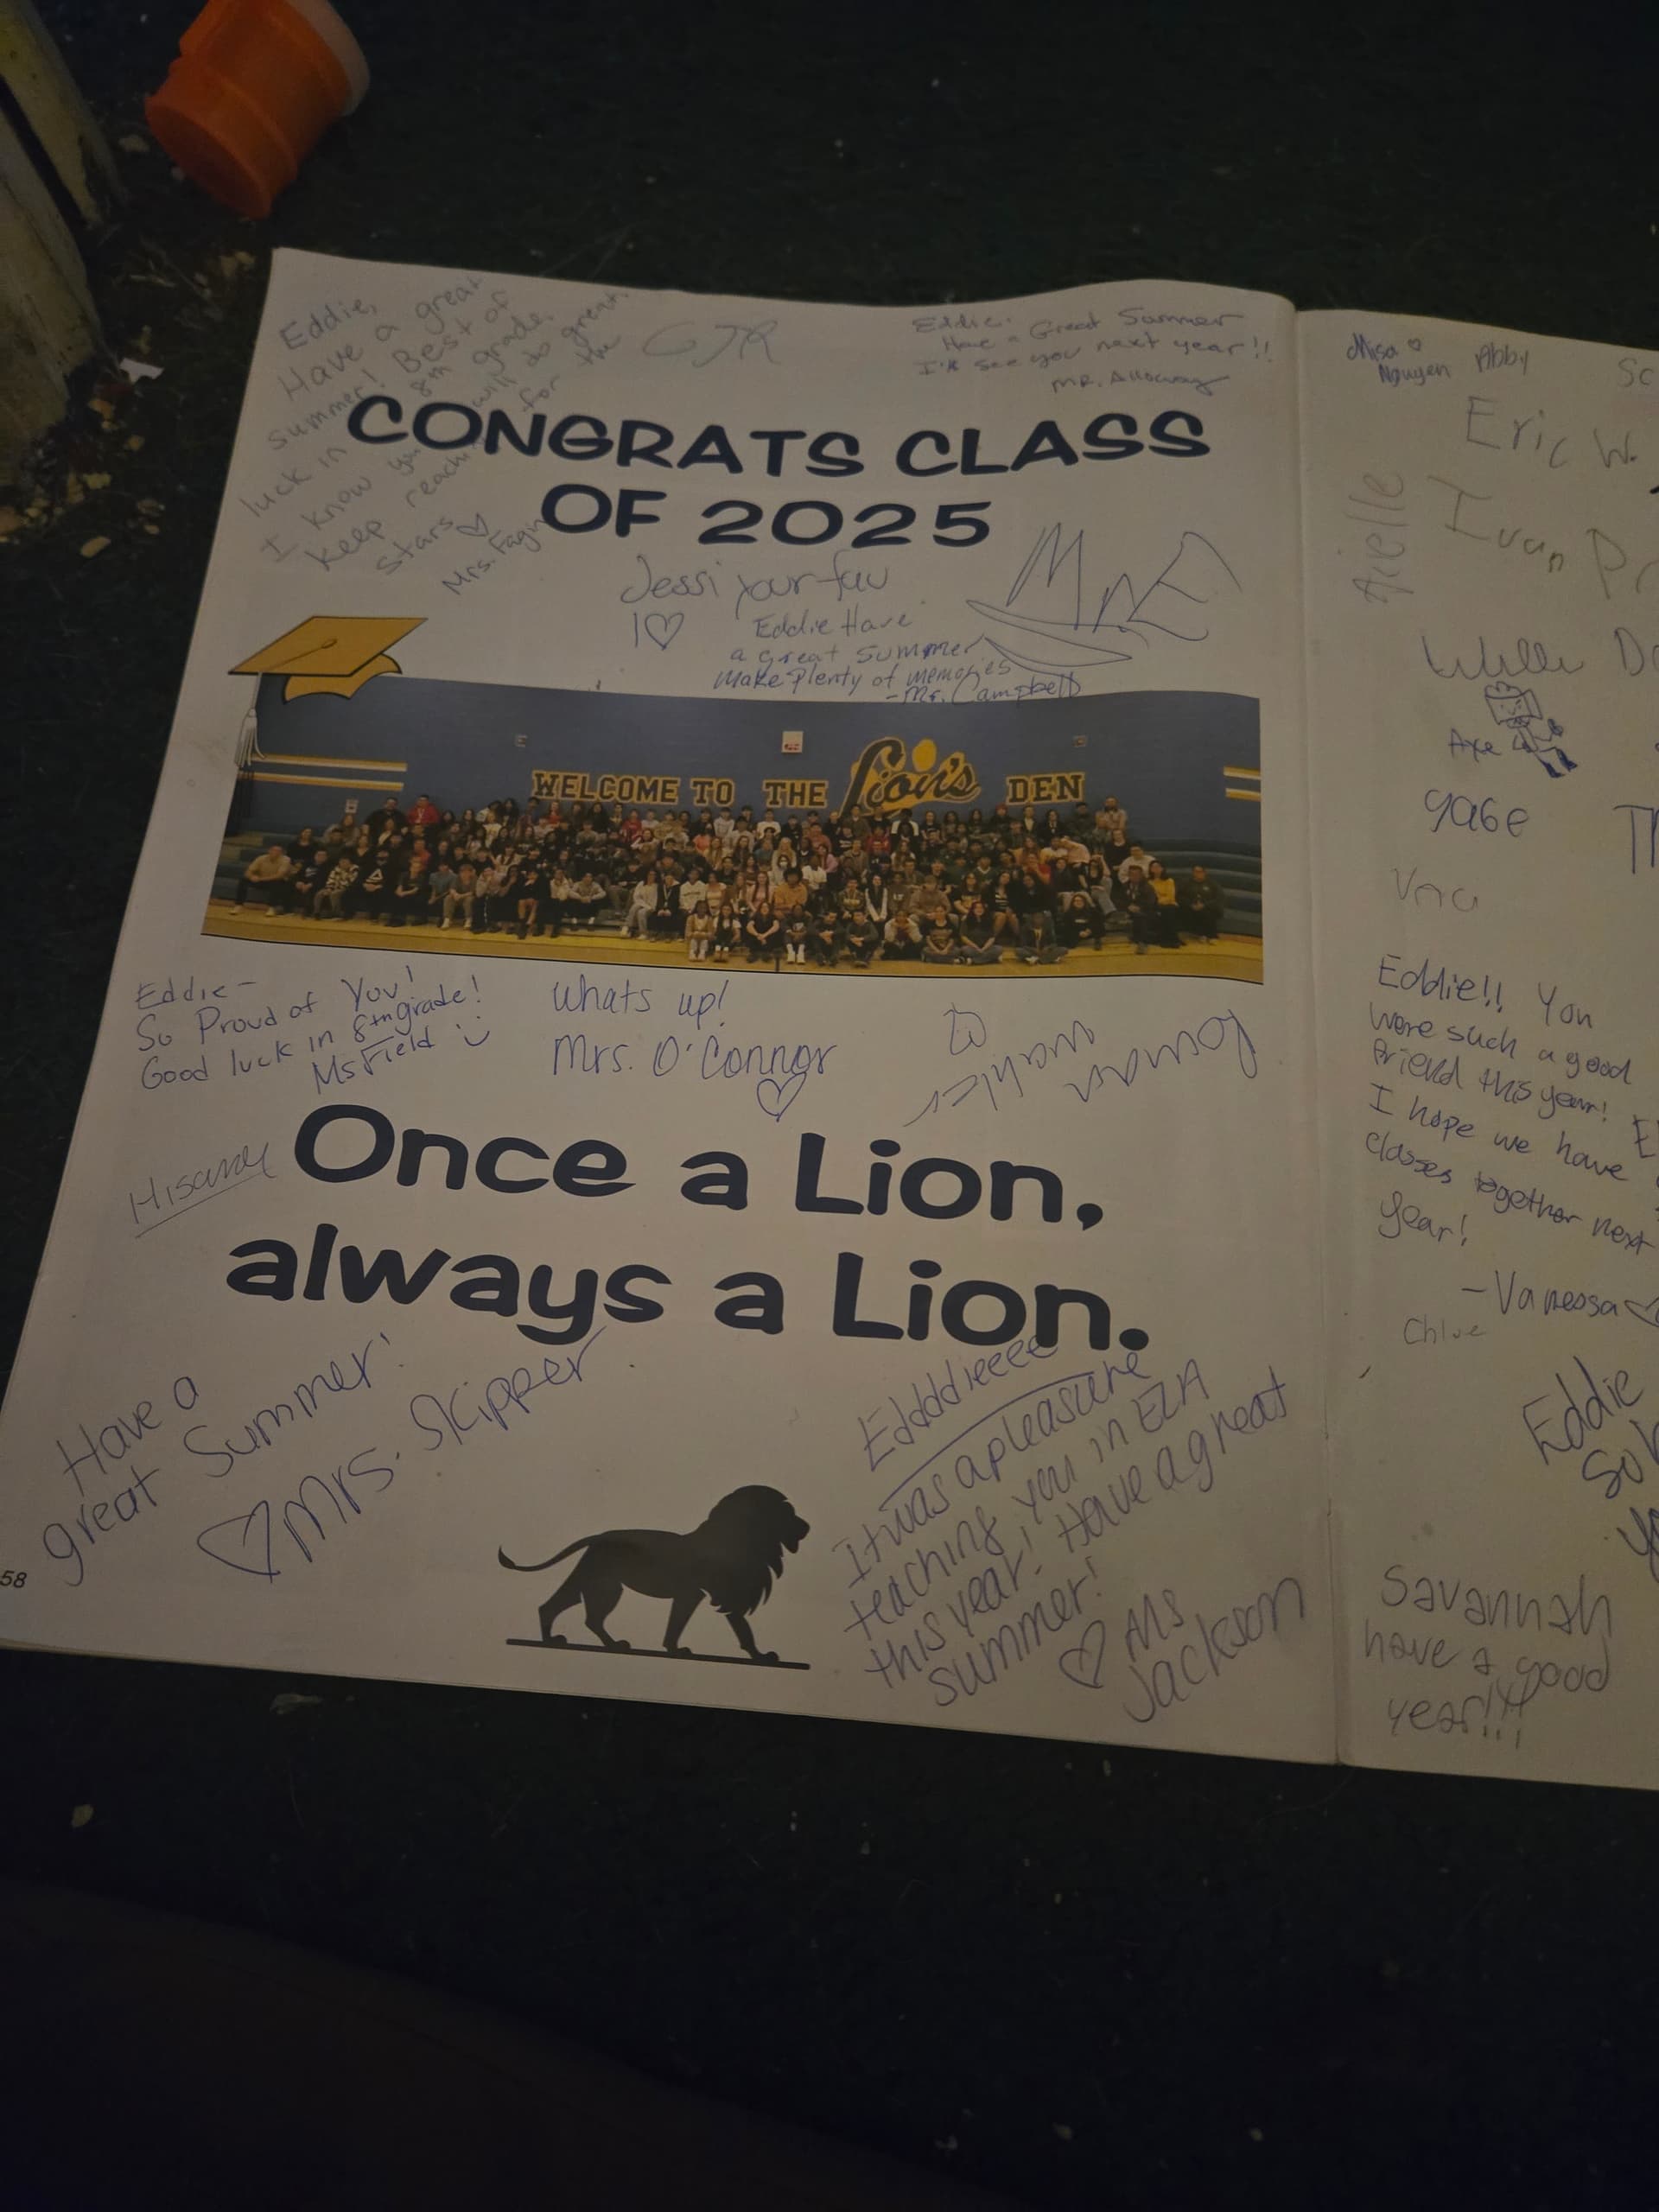 Eddie,
Have a great
summer! Best of
luck in 8th grade.
I know you will do great.
Keep reaching for the
stars ♡
Mrs. Fagin
GJR
Eddie.
Have a Great Summer
I'll see you next year!!
MR. Alloway
CONGRATS CLASS
OF 2025
Jessi your fav
1♡
Eddie Have
a great summer
Make Plenty of memories
-Mr. Campbell
WELCOME TO THE Lion's DEN
Eddie-
So Proud of You!
Good luck in 8th grade!
Ms Field
Whats up!
Mrs. O'Connor
♡
Once a Lion,
always a Lion.
Have a
great Summer!
♡ Mrs. Skipper
Eddddieeee
It was a pleasure
teaching you in ELA
this year! Have a great
summer!
♡ Ms
Jackson
58
Misa ♡
Nguyen
Abby
Sc
Eric W.
Arielle
Ivan
Axe
gabe
Eddie!! You
were such a good
friend this year!
I hope we have
classes together next
year!
-Vanessa ♡
Chloe
Eddie
So
Savannah
have a good
year!!!